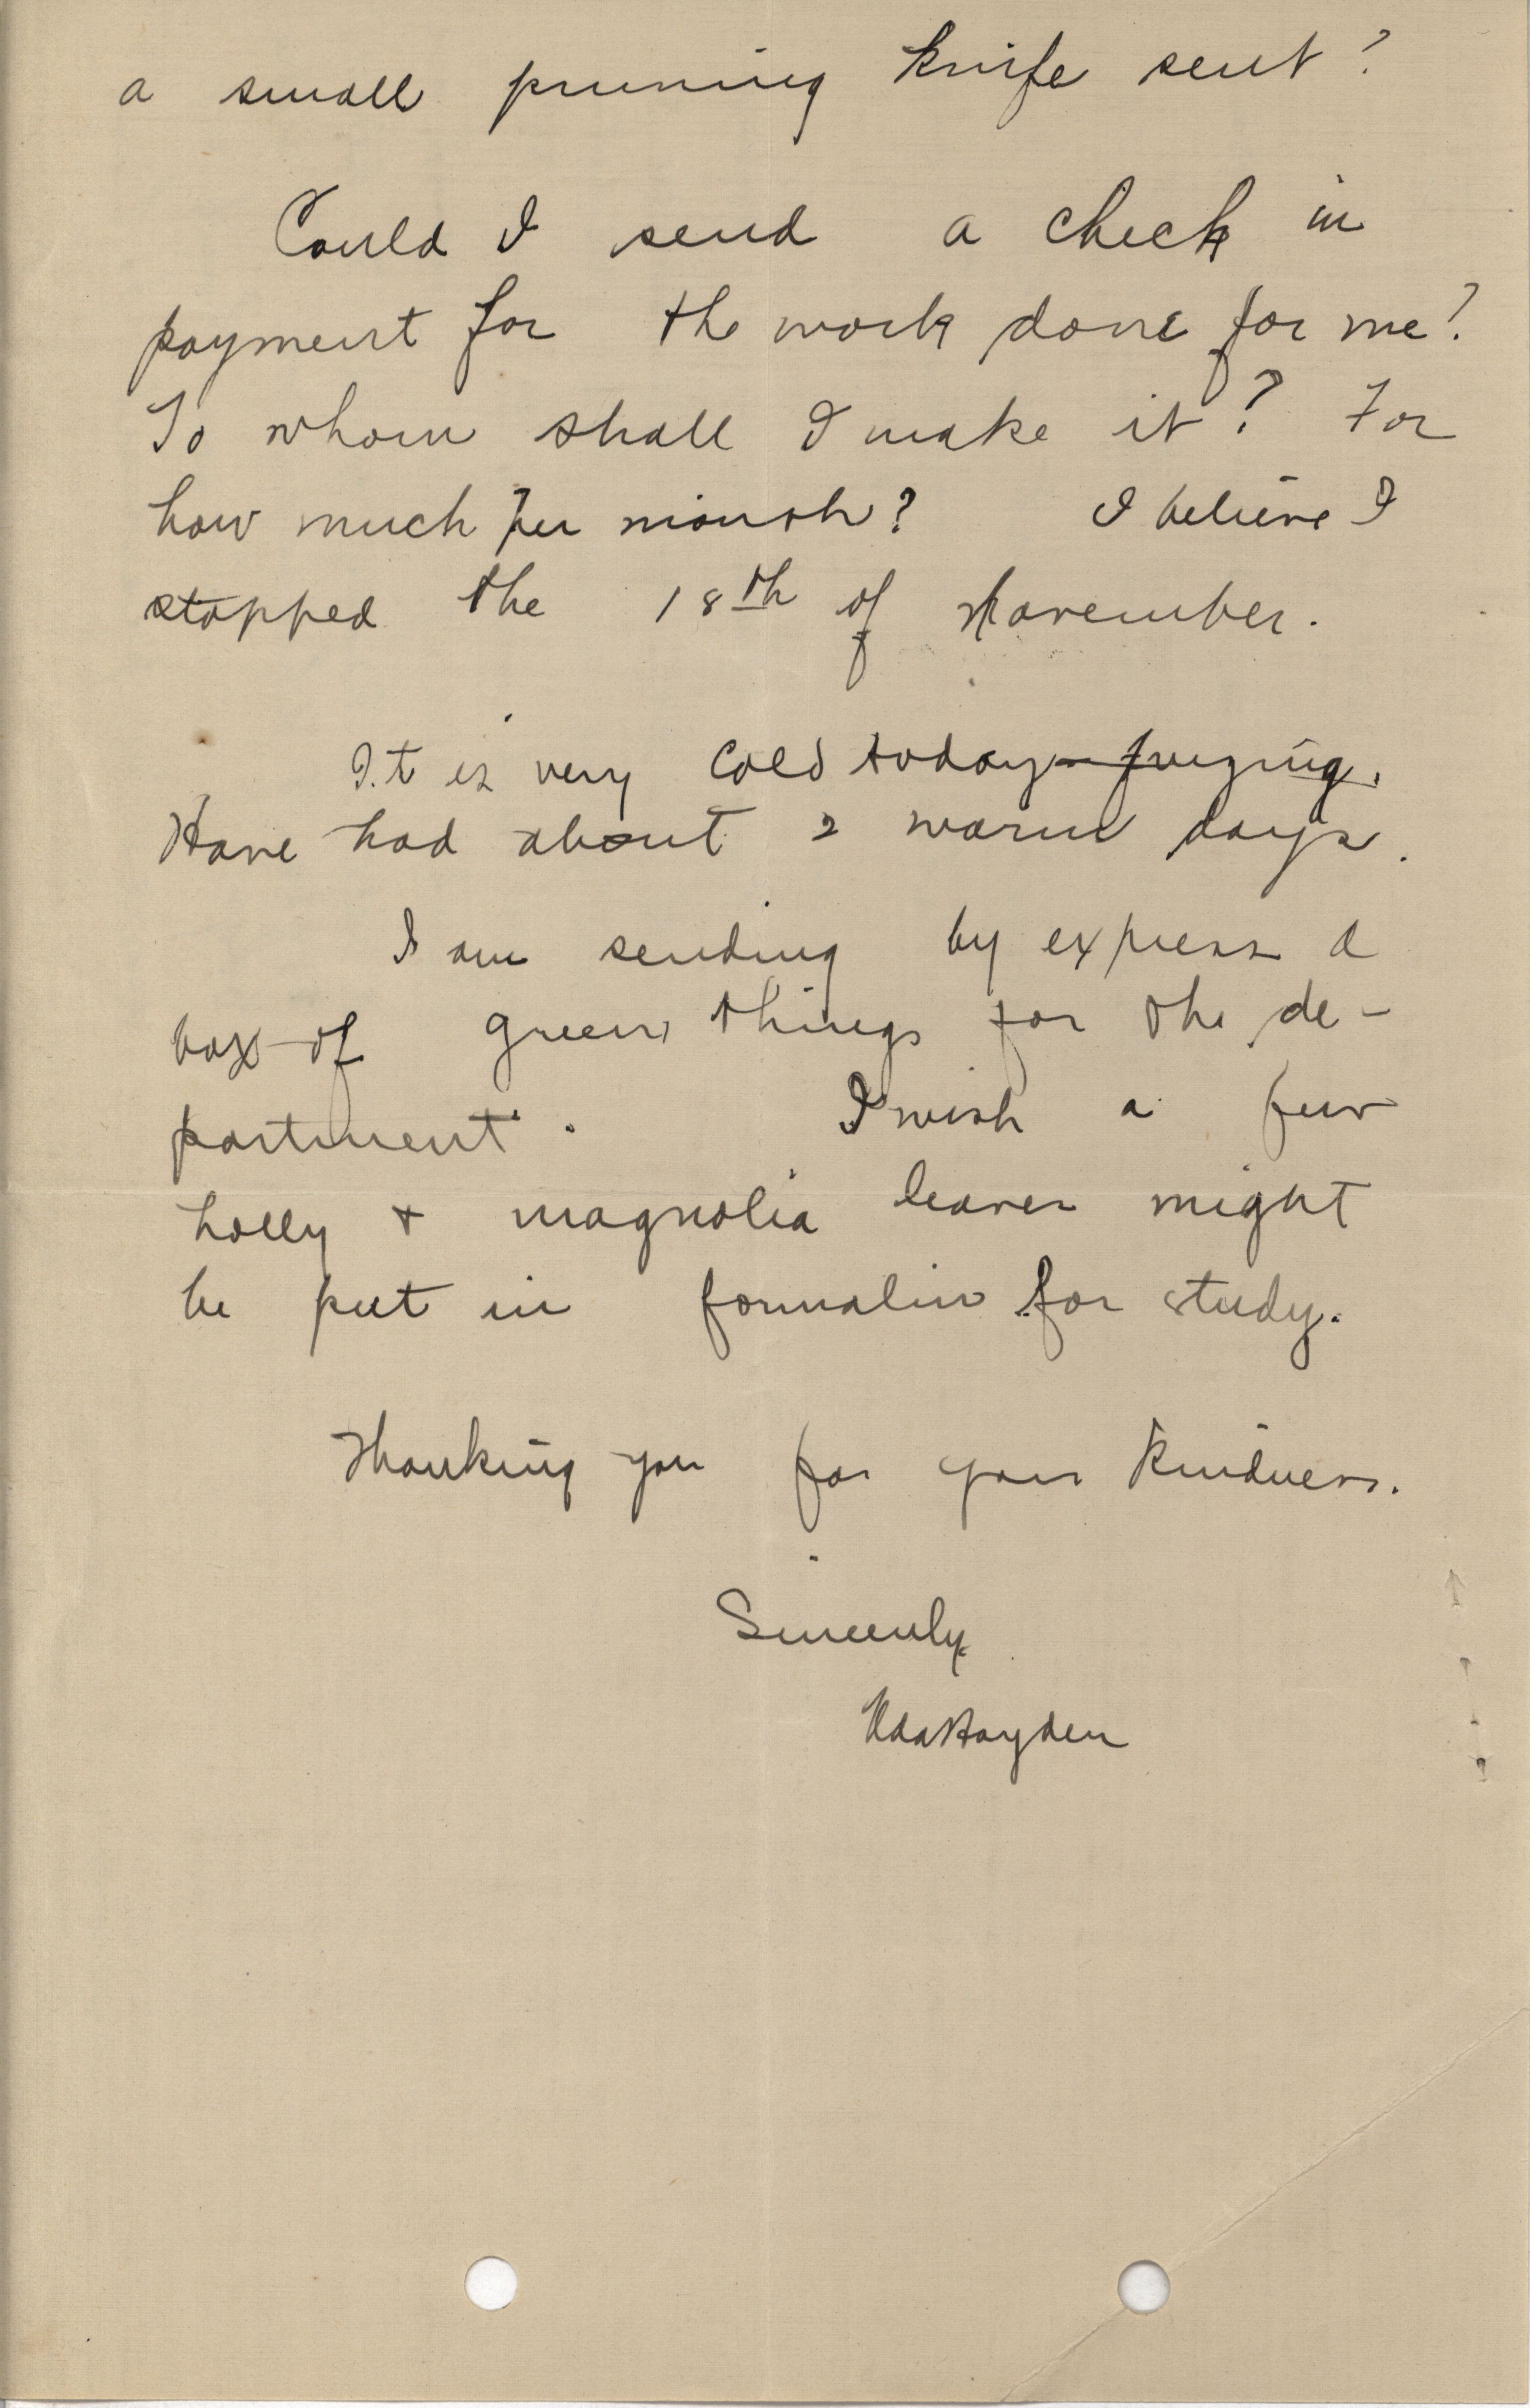 a small pruning knife sent?
Could I send a check in
payment for the work done for me?
To whom shall I make it? For
how much per month? I believe I
stopped the 18th of November.
It is very cold today - freezing.
Have had about 2 warm days.
I am sending by express a
box of green things for the de-
partment. I wish a few
holly + magnolia leaves might
be put in formalin for study.
Thanking you for your kindness.
Sincerely
Ada Hayden